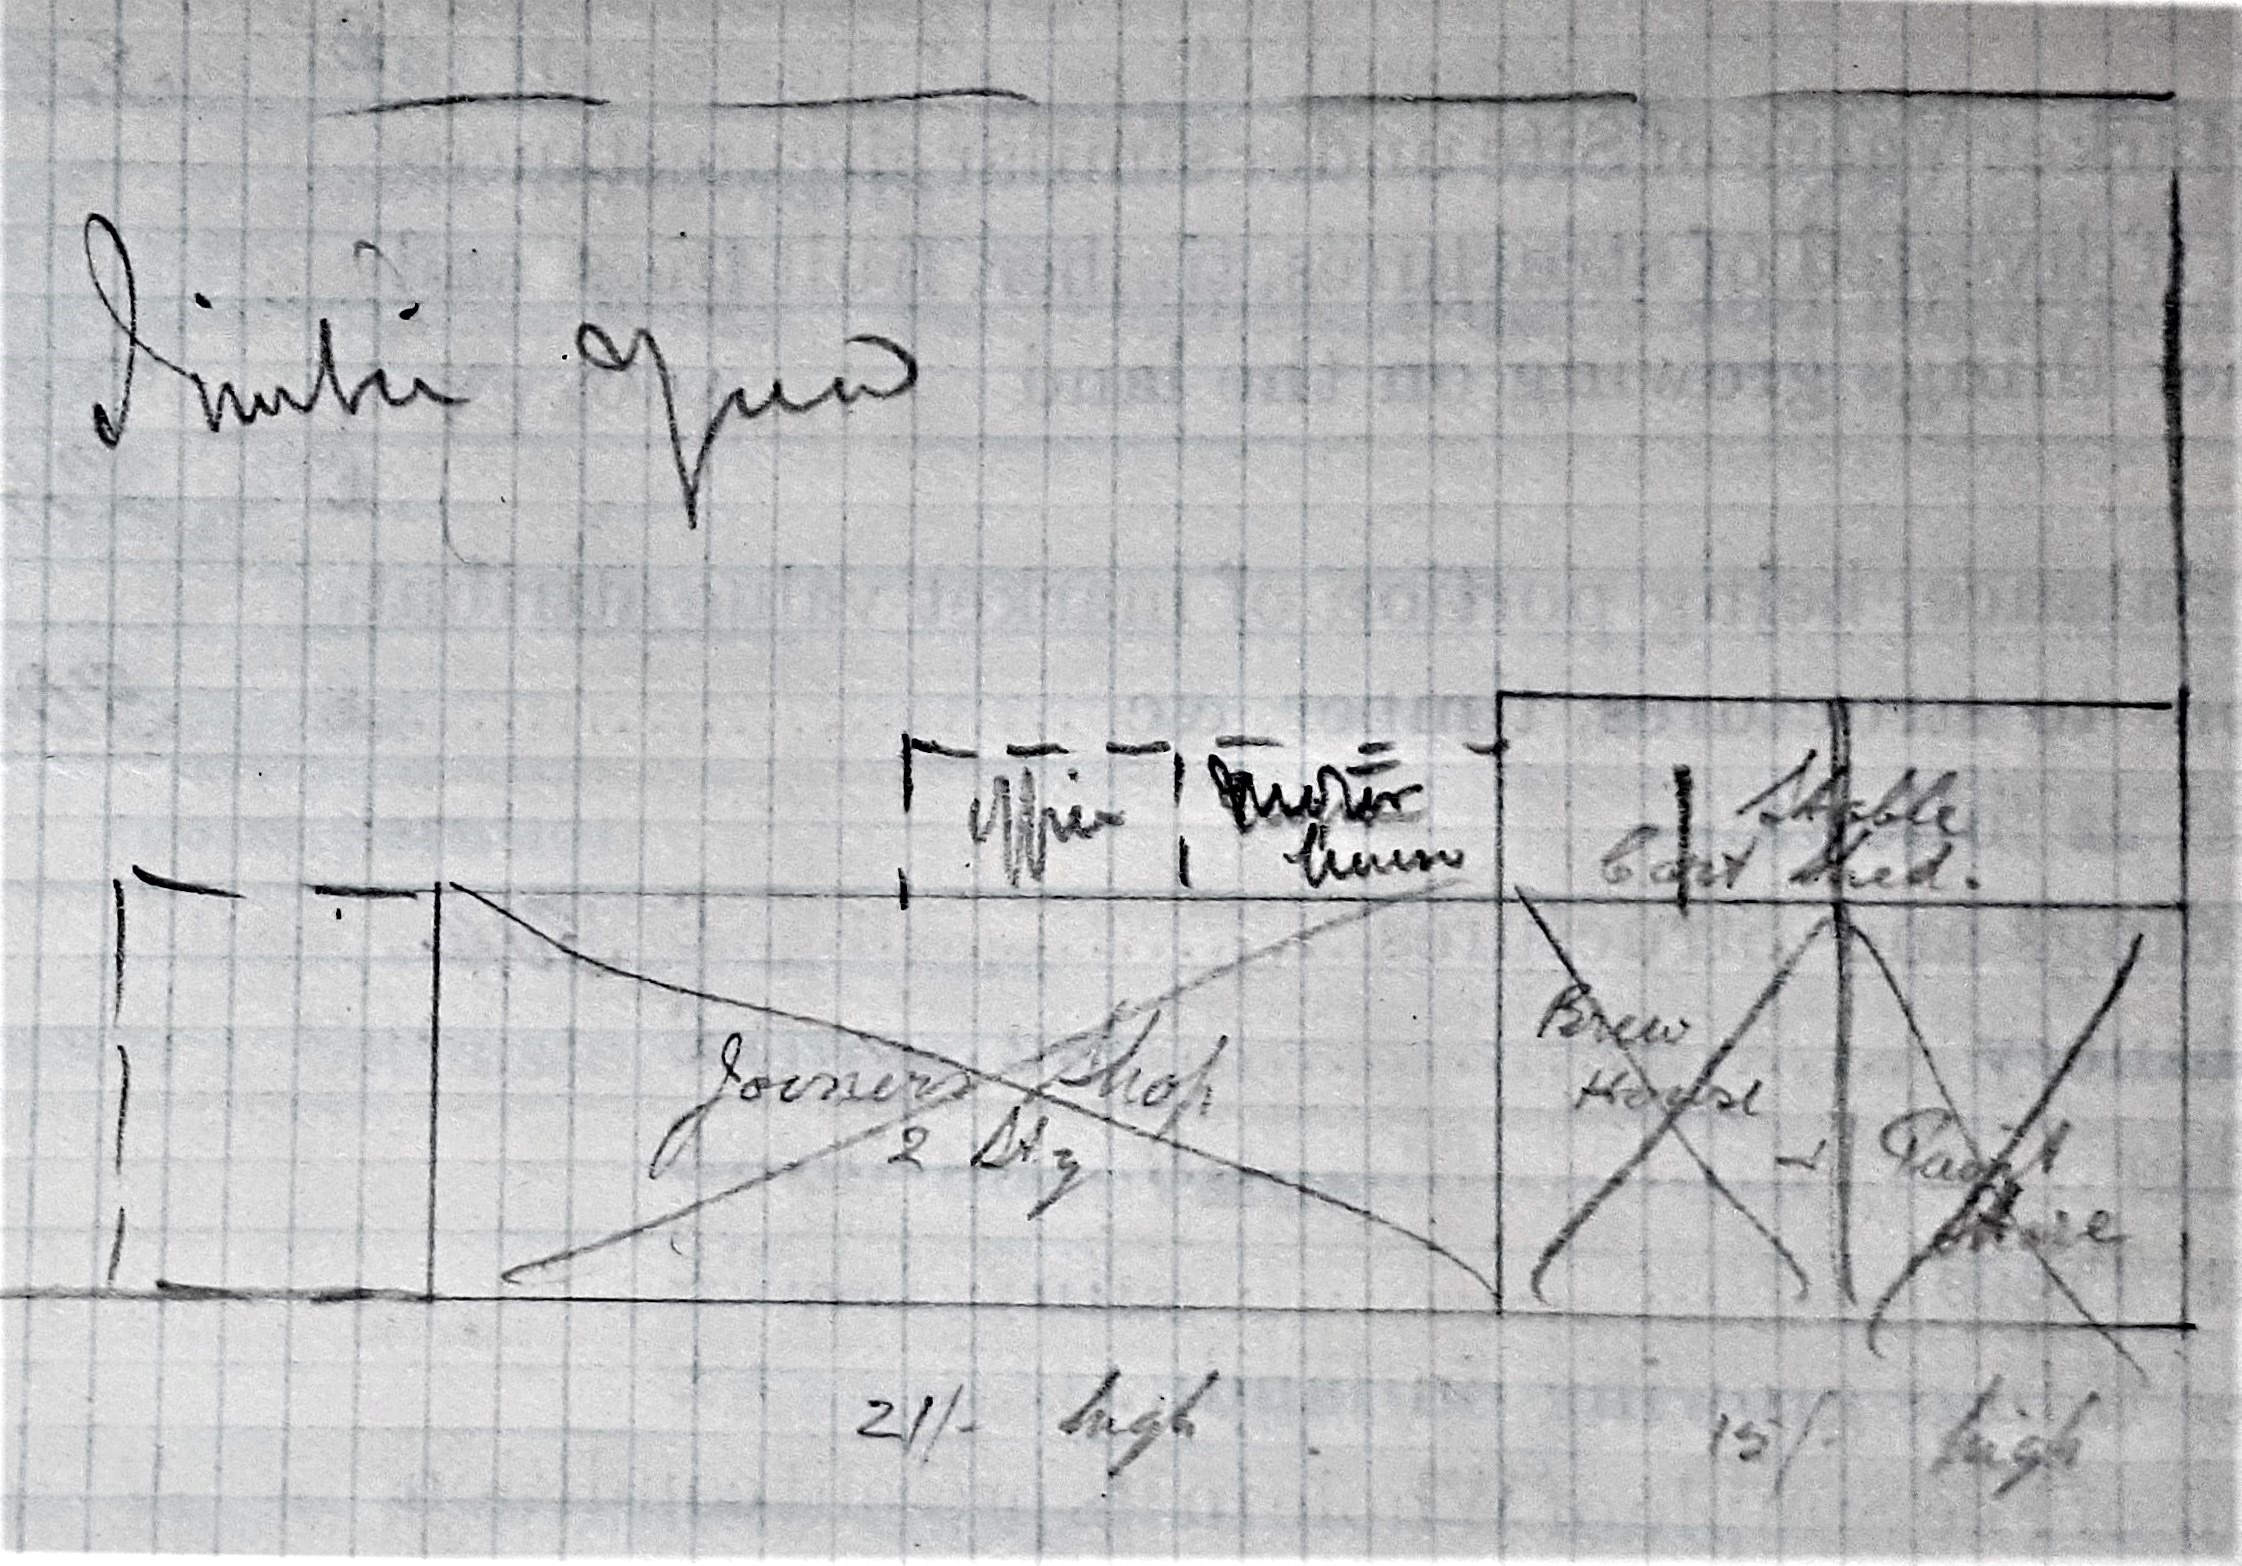 Timber
Office
Motor
house
Stable
Cart Shed.
Brew
House
Joiners Shop
2 Sty
Paint
Store
21/- high
15/- high